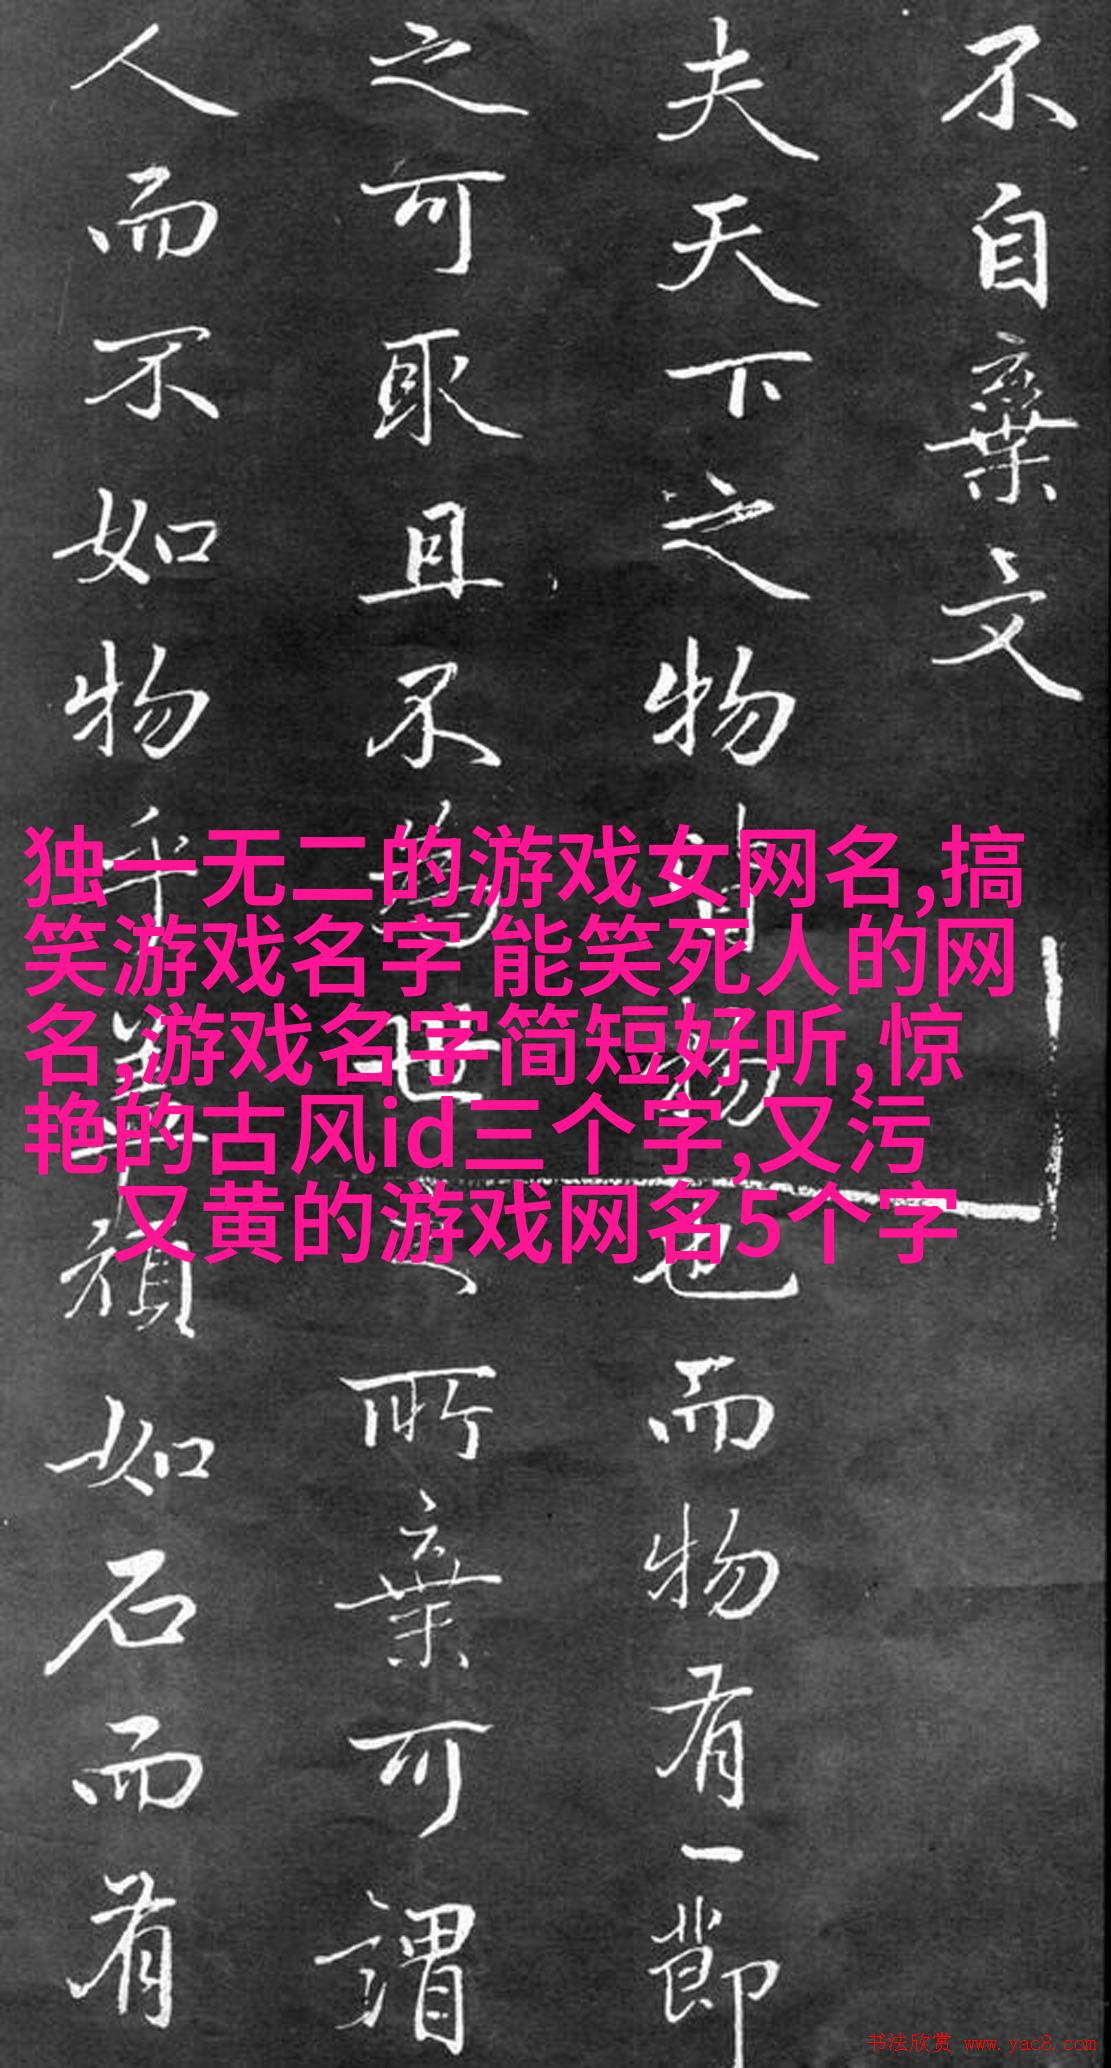 不自棄文
夫天下之物皆物也而物有一節
之可取且不為世之所棄可謂
人而不如物乎蓋頑如石而有
独一无二的游戏女网名,搞
笑游戏名字 能笑死人的网
名,游戏名字简短好听,惊
艳的古风id三个字,又污
又黄的游戏网名5个字
书法欣赏 www.yac8.com